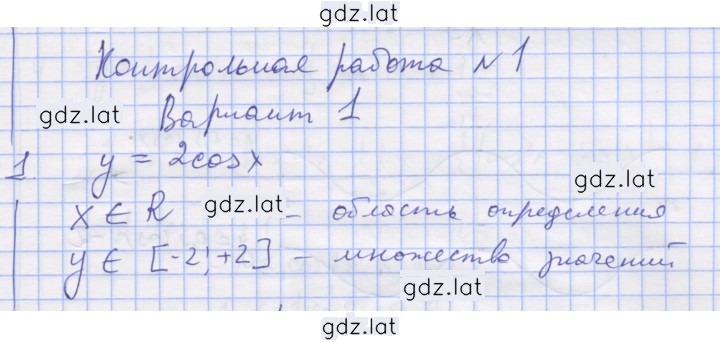 gdz.lat
Контрольная работа №1
gdz.lat Вариант 1
1. y = 2cosx
gdz.lat
x ∈ R gdz.lat - область определения
y ∈ [-2; +2] - множество значений
gdz.lat
gdz.lat